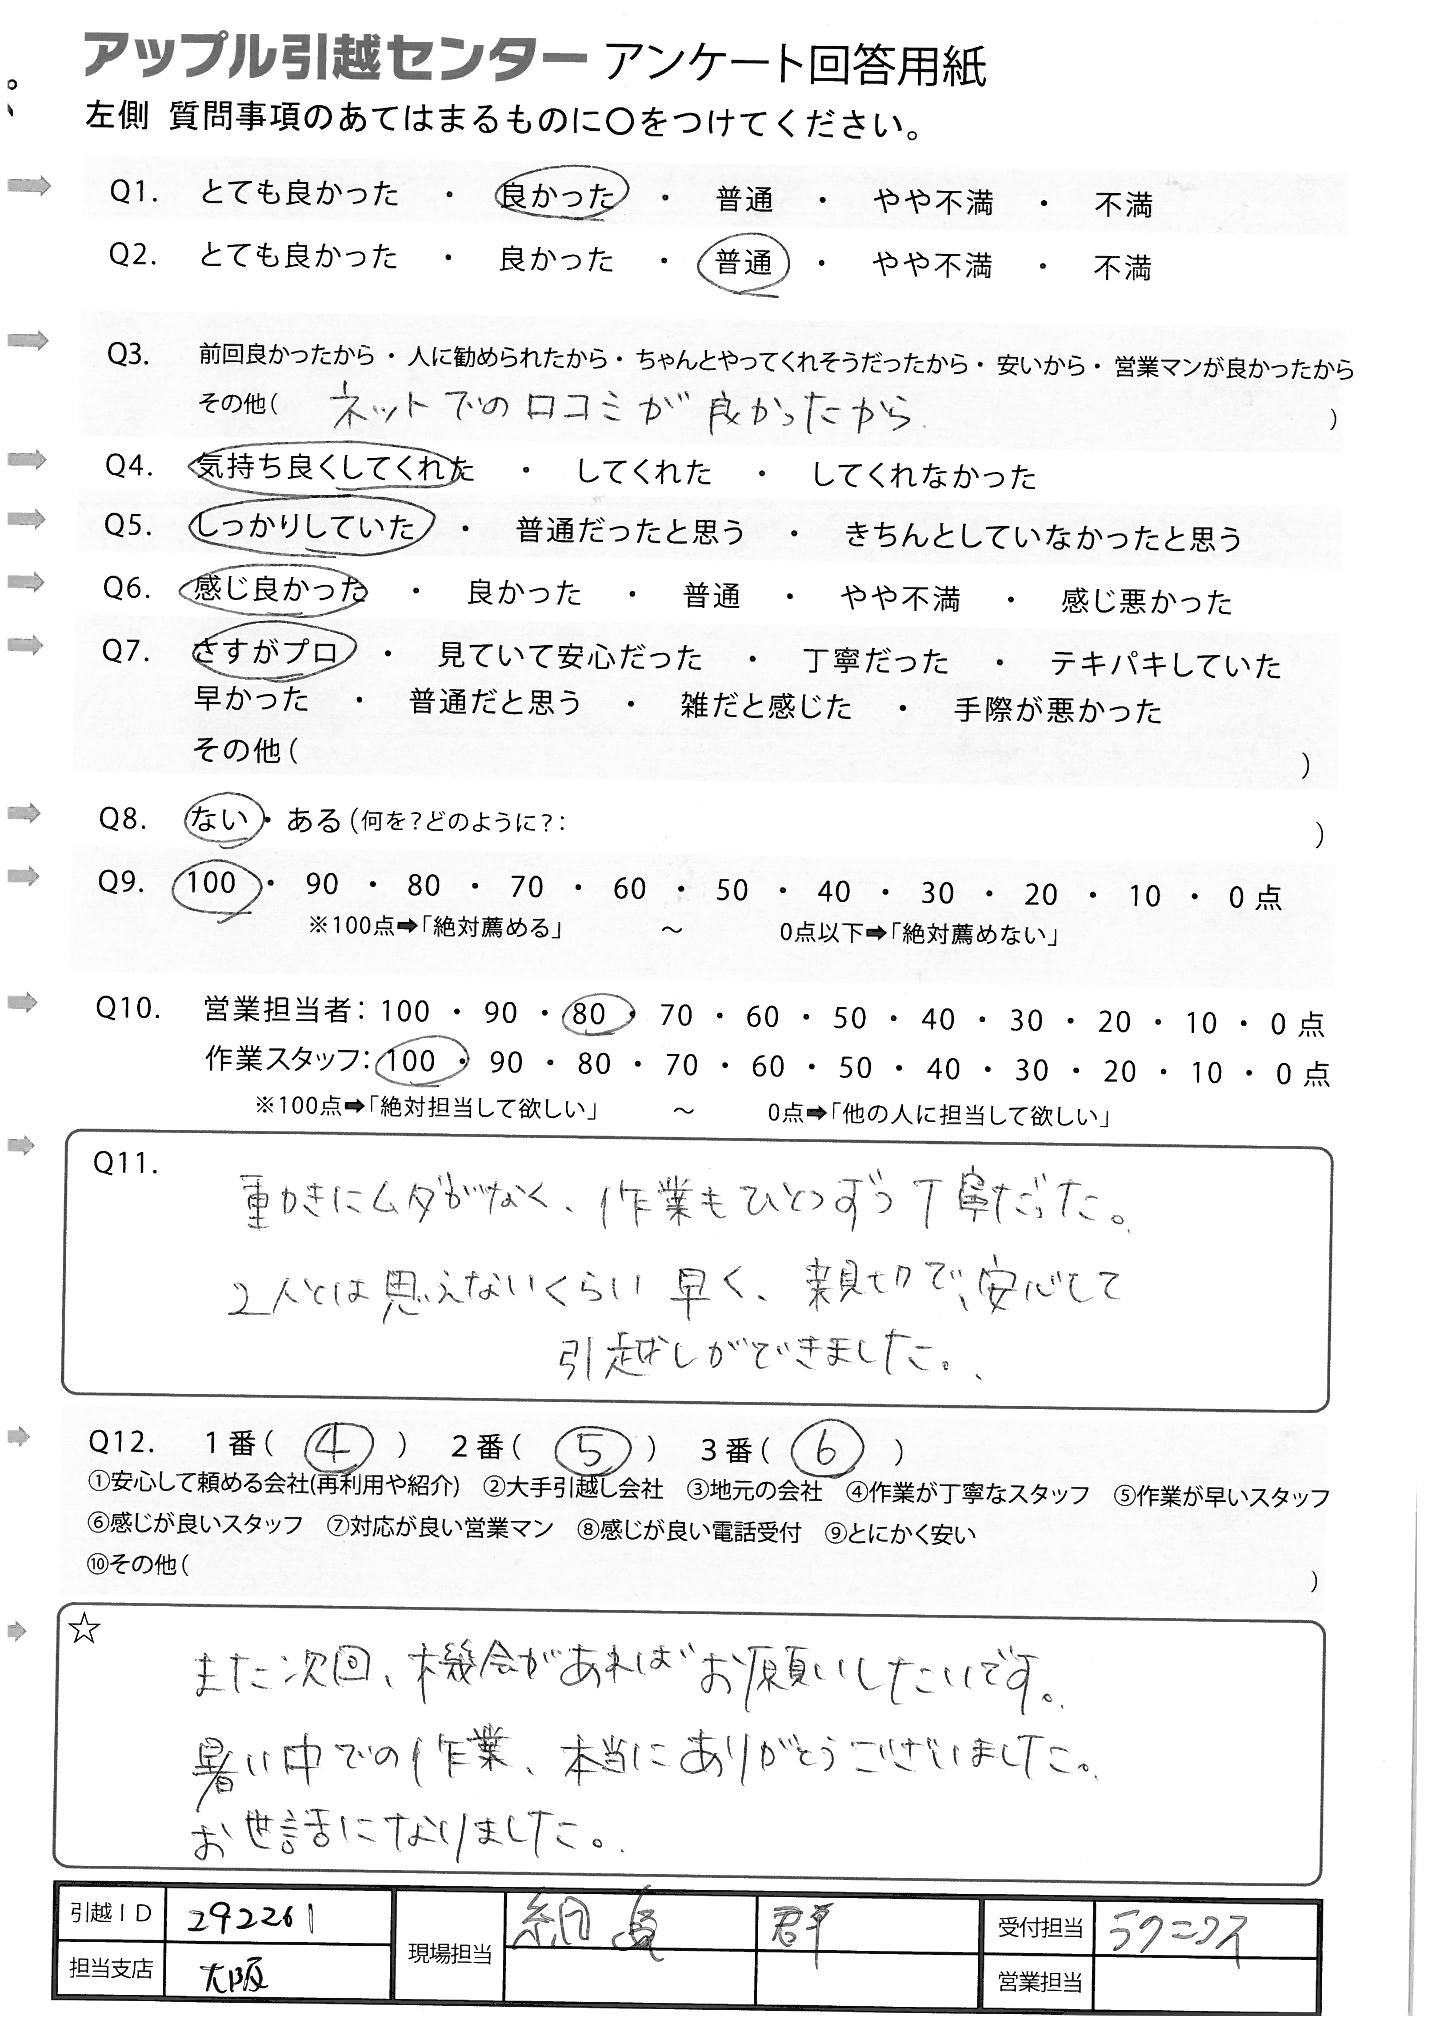 アップル引越センター アンケート回答用紙
左側 質問事項のあてはまるものに〇をつけてください。
Q1. とても良かった ・ 良かった ・ 普通 ・ やや不満 ・ 不満
Q2. とても良かった ・ 良かった ・ 普通 ・ やや不満 ・ 不満
Q3. 前回良かったから・人に勧められたから・ちゃんとやってくれそうだったから・安いから・営業マンが良かったから
その他( ネットでの口コミが良かったから )
Q4. 気持ち良くしてくれた ・ してくれた ・ してくれなかった
Q5. しっかりしていた ・ 普通だったと思う ・ きちんとしていなかったと思う
Q6. 感じ良かった ・ 良かった ・ 普通 ・ やや不満 ・ 感じ悪かった
Q7. さすがプロ ・ 見ていて安心だった ・ 丁寧だった ・ テキパキしていた
早かった ・ 普通だと思う ・ 雑だと感じた ・ 手際が悪かった
その他( )
Q8. ない・ある(何を?どのように?: )
Q9. 100 ・ 90 ・ 80 ・ 70 ・ 60 ・ 50 ・ 40 ・ 30 ・ 20 ・ 10 ・ 0点
※100点➡「絶対薦める」 〜 0点以下➡「絶対薦めない」
Q10. 営業担当者: 100 ・ 90 ・ 80 ・ 70 ・ 60 ・ 50 ・ 40 ・ 30 ・ 20 ・ 10 ・ 0点
作業スタッフ: 100 ・ 90 ・ 80 ・ 70 ・ 60 ・ 50 ・ 40 ・ 30 ・ 20 ・ 10 ・ 0点
※100点➡「絶対担当して欲しい」 〜 0点➡「他の人に担当して欲しい」
Q11.
動きにムダがなく、作業もひとつずつ丁寧だった。
2人とは思えないくらい早く、親切で、安心して
引越しができました。
Q12. 1番( 4 ) 2番( 5 ) 3番( 6 )
①安心して頼める会社(再利用や紹介) ②大手引越し会社 ③地元の会社 ④作業が丁寧なスタッフ ⑤作業が早いスタッフ
⑥感じが良いスタッフ ⑦対応が良い営業マン ⑧感じが良い電話受付 ⑨とにかく安い
⑩その他( )
☆
また次回、機会があればお願いしたいです。
暑い中での作業、本当にありがとうございました。
お世話になりました。
引越ID 292261 現場担当 細 群 受付担当 ラクニクス
担当支店 大阪 営業担当